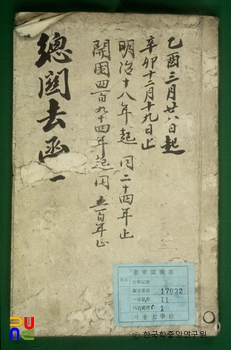 乙酉三月廿八日起
辛卯十二月十九日止
明治十八年起 同二十四年止
開國四百九十四年起 同五百年止
總關去函 一
17832
11
1
서울大學校
© 한국학중앙연구원